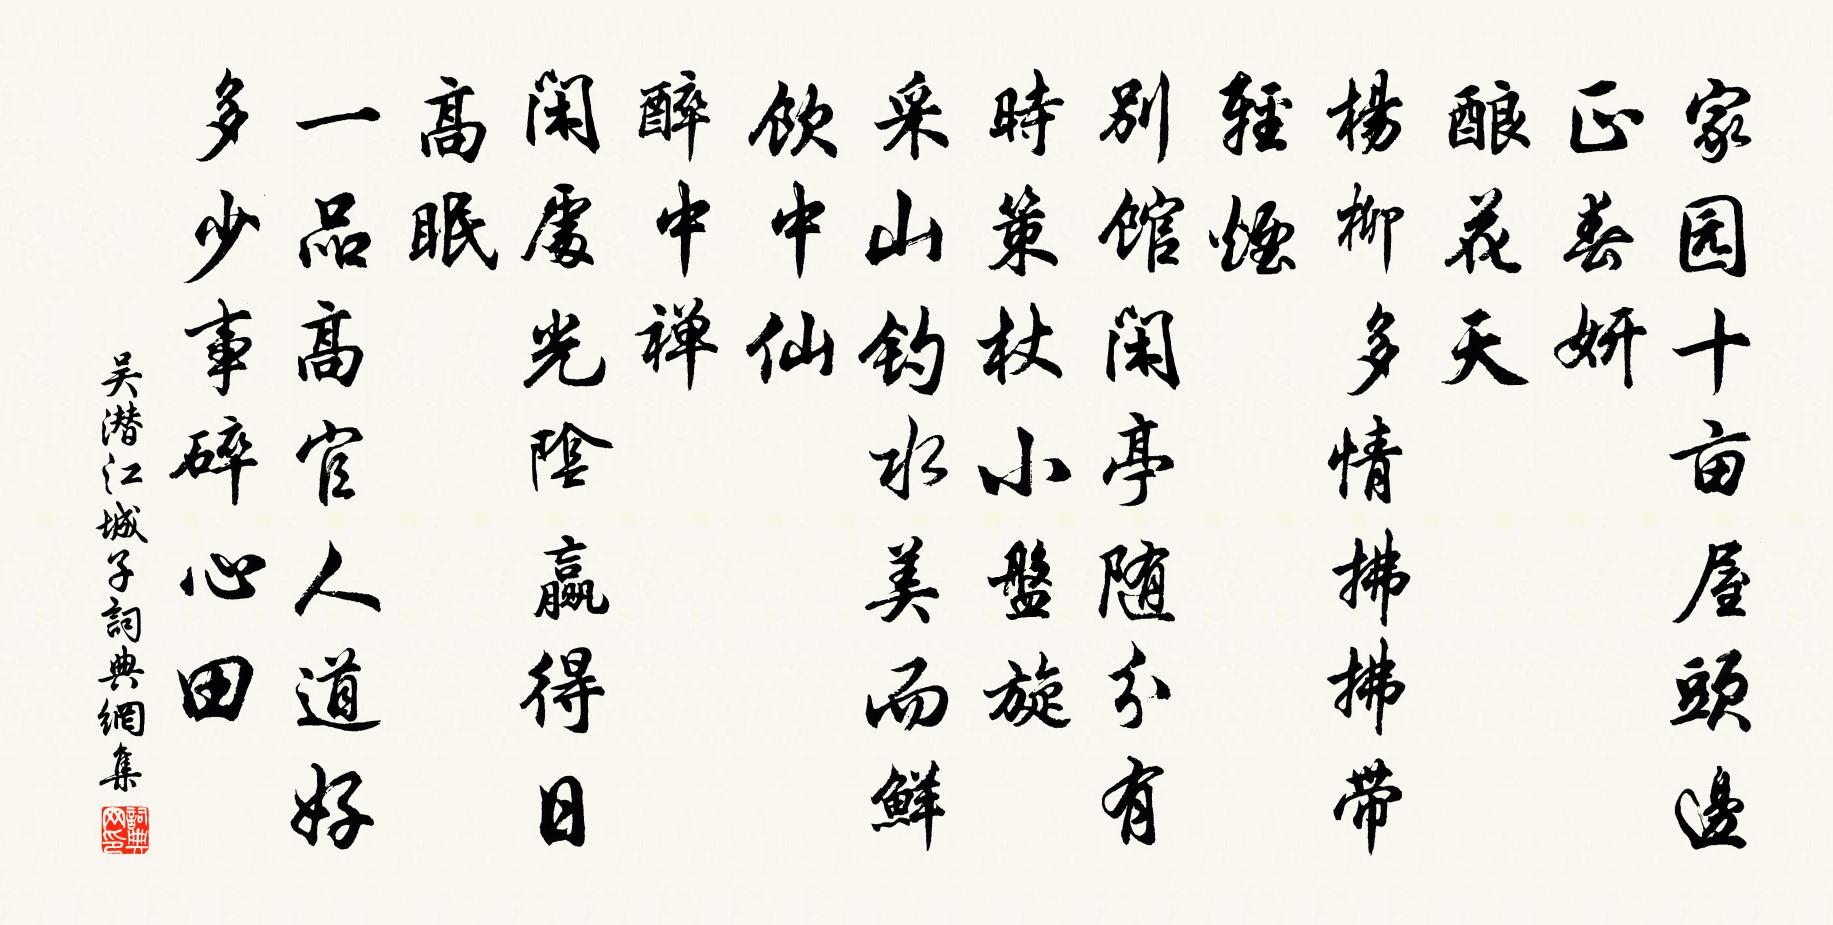 家园十亩屋頭邊
正春妍
酿花天
楊柳多情拂拂带
輕煙
别馆闲亭随分有
時策杖小盤旋
采山钓水美而鮮
飲中仙
醉中禅
闲處光陰赢得日
高眠
一品高官人道好
多少事碎心田
吴潜江城子詞典網集
詞典网印